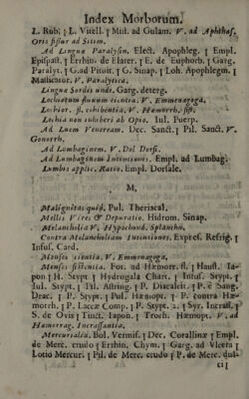 Index Morborum.
L. Rubi ; L. Vitell. ; Mit. ad Gulam. V. ad Aphthas,
Oris fissur ad Sitim.
Ad Lingua Paralysin. Elect. Apophleg. ; Empl.
Epispast. ; Errhin. de Elater. ; E. de Euphorb. ; Garg.
Paralyt. ; G. ad G. Sinap. ; Loh. Apophlegm. ;
Masticator. V. Paralytica.
Lingua Sordes unde. Garg. deterg.
Lochiorum cientia. V. Emmenagoga.
Lochior. cohibentia, V. Hæmorrh.
Lochia non subsberi ab Opio. Jul. Puerp.
Ad Luem Veneream. Dec. Sanct. ; Pil. Sanct. V.
Gonorrh.
Ad Lumbaginem. V. Dol Dorsi.
Ad Lumbaginem Intimiones. Empl. ad Lumbag.
Lumbos applic. Ratio. Empl. Dorsale.
M,
Malignitas quid, Pul. Theriacal.
Mellis Vires & Depuratio. Hidrom. Sinap.
Melancholia V. Hypochond. Splanchn.
Contra Melancholiam Intimiones. Expres. Refrig. ;
Infus. Card.
Menses cientia V. Emmenagoga,
Menses sistentia. Fot. ad Hæmorr. ; Haust.
; H. Stypt ; Hydrogala Chart. ; Infus. Stypt. ;
Jul. Stypt. ; Til. Astring. ; P. Diacaseit. ; P. è Sang.
Drac. ; P. Stypt. ; Pul. Hæmopt. ; P. contra Hæ-
morrh. ; P. Lacæ Comp. ; P. Stypt. 2. ; Syr. Incrass. ;
S. de Ovis ; Tinct. Japon. ; Troch. Hæmopt. V. ad
Hæmorrag. Incrassantia.
Mercurialia. Bol. Vermif. ; Dec. Corallinæ ; Empl.
de Merc. crudo ; Errhin. Chym. ; Garg. ad Ulcera ;
Lotio Mercur. ; Pil. de Merc. crudo ; P. de Merc. dul-
ci ;